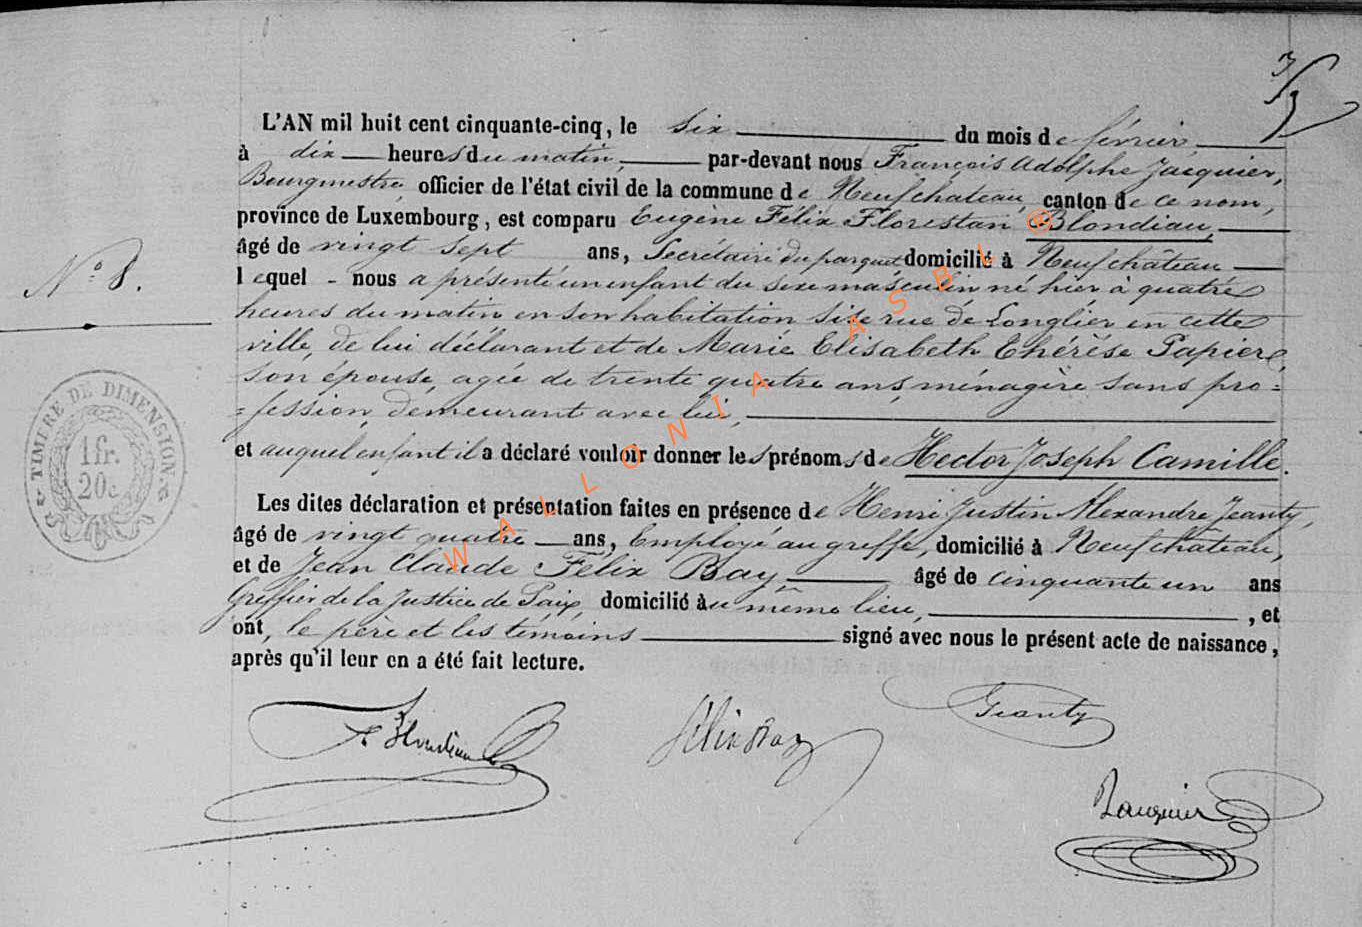 L'AN mil huit cent cinquante-cinq, le six du mois de février,
à dix heures du matin, par-devant nous François Adolphe Jacquier,
Bourgmestre, officier de l'état civil de la commune de Neufchateau, canton de ce nom,
province de Luxembourg, est comparu Eugène Félix Florestan Blondiau,
âgé de vingt sept ans, Secrétaire du parquet domicilié à Neufchâteau
N° 8.
lequel - nous a présenté un enfant du sexe masculin né hier à quatre
heures du matin en son habitation sise rue de Longlier en cette
ville, de lui déclarant et de Marie Elisabeth Thérèse Papier
son épouse, agée de trente quatre ans, ménagère sans pro=
=fession, demeurant avec lui,
TIMBRE DE DIMENSION.
1 fr.
20 c
et auquel enfant il a déclaré vouloir donner les prénoms de Hector Joseph Camille.
Les dites déclaration et présentation faites en présence de Henri Justin Alexandre Jeanty,
âgé de vingt quatre ans, Employé au greffe, domicilié à Neufchateau,
et de Jean Claude Félix Bay, âgé de cinquante un ans
Greffier de la Justice de Paix, domicilié au même lieu, , et
ont, le père et les témoins signé avec nous le présent acte de naissance,
après qu'il leur en a été fait lecture.
WALLONIA ASBL ©
F Blondiau
Félix Bay
Jeanty
Jacquier